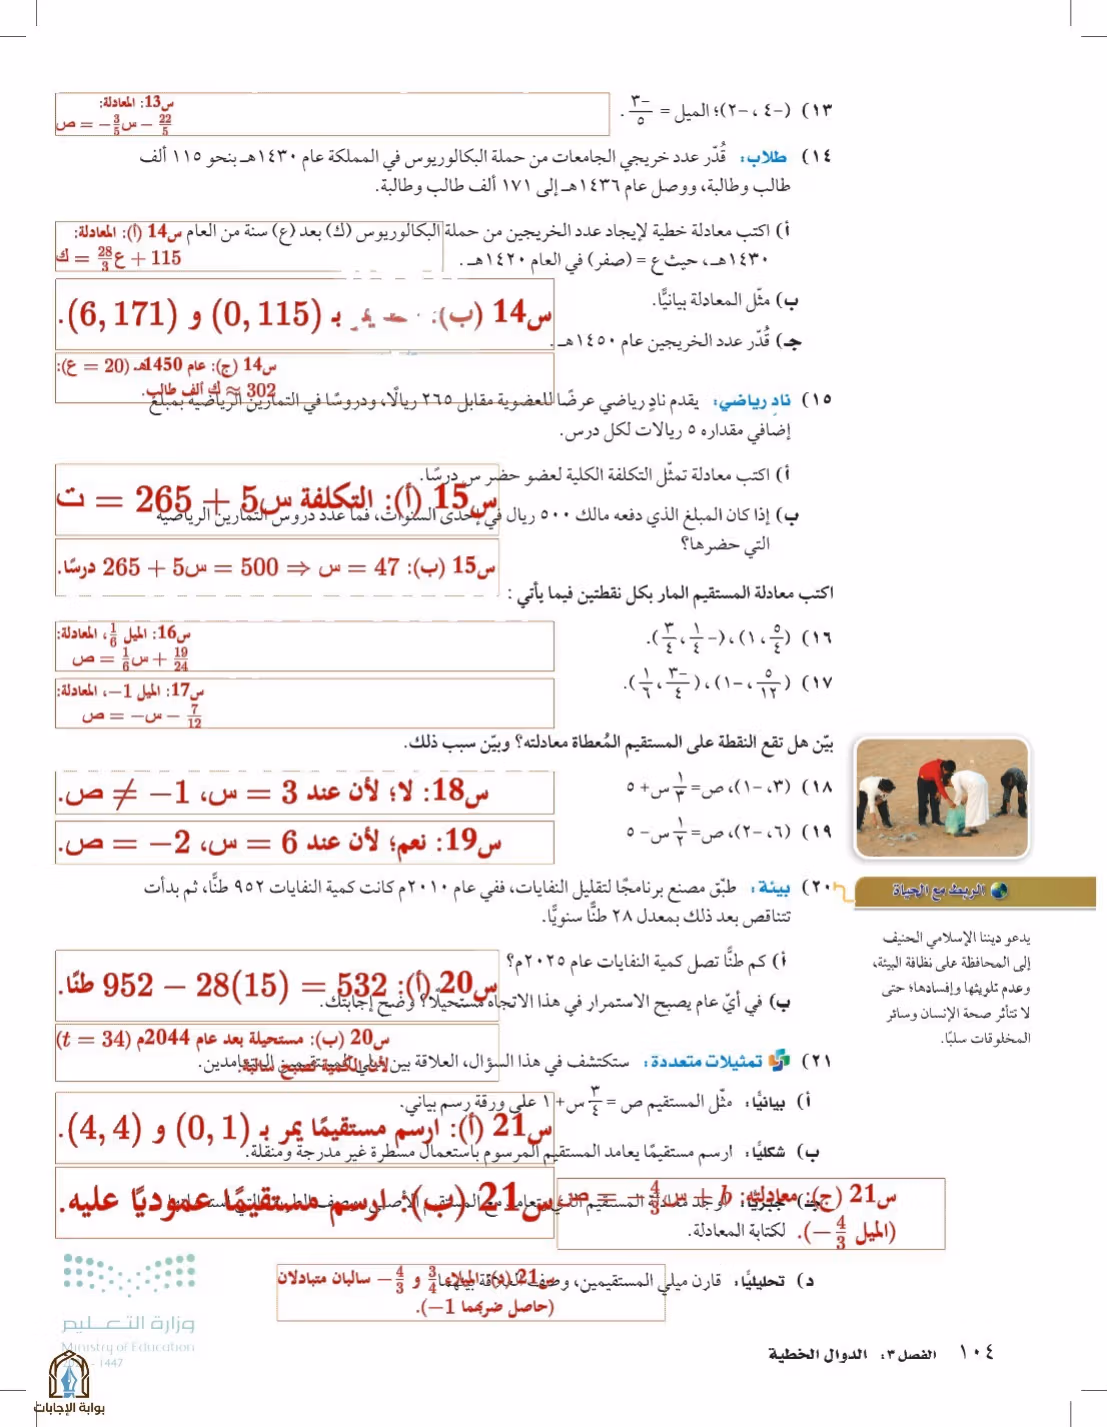 ١٣) (-٤، -٢)؛ الميل = -٣/٥ .
س13: المعادلة:
ص = -3/5 س - 22/5
١٤) طلاب: قُدّر عدد خريجي الجامعات من حملة البكالوريوس في المملكة عام ١٤٣٠هـ بنحو ١١٥ ألف
طالب وطالبة، ووصل عام ١٤٣٦هـ إلى ١٧١ ألف طالب وطالبة.
أ) اكتب معادلة خطية لإيجاد عدد الخريجين من حملة البكالوريوس (ك) بعد (ع) سنة من العام
١٤٣٠هـ، حيث ع = (صفر) في العام ١٤٢٠هـ .
س14 (أ): المعادلة:
ك = 28/3 ع + 115
ب) مثّل المعادلة بيانيًّا.
س14 (ب): بـ (0, 115) و (6, 171).
جـ) قُدّر عدد الخريجين عام ١٤٥٠هـ .
س14 (ج): عام 1450هـ (ع = 20):
ك ≈ 302 ألف طالب.
١٥) نادٍ رياضي: يقدم نادٍ رياضي عرضًا للعضوية مقابل ٢٦٥ ريالًا، ودروسًا في التمارين الرياضية بمبلغ
إضافي مقداره ٥ ريالات لكل درس.
أ) اكتب معادلة تمثّل التكلفة الكلية لعضو حضر س درسًا.
س15 (أ): التكلفة ت = 265 + 5س
ب) إذا كان المبلغ الذي دفعه مالك ٥٠٠ ريال في إحدى السنوات، فما عدد دروس التمارين الرياضية
التي حضرها؟
س15 (ب): 265 + 5س = 500 ⇒ س = 47 درسًا.
اكتب معادلة المستقيم المار بكل نقطتين فيما يأتي :
١٦) (٥/٤، ١)، (-١/٤، ٣/٤).
س16: الميل 1/6، المعادلة:
ص = 1/6 س + 19/24
١٧) (٥/١٢، -١)، (-٣/٤، ١/٦).
س17: الميل -1، المعادلة:
ص = -س - 7/12
بيّن هل تقع النقطة على المستقيم المُعطاة معادلته؟ وبيّن سبب ذلك.
١٨) (٣، -١)، ص = ١/٣ س + ٥
س18: لا؛ لأن عند س = 3، ص ≠ -1.
١٩) (٦، -٢)، ص = ١/٢ س - ٥
س19: نعم؛ لأن عند س = 6، ص = -2.
٢٠) بيئة: طبّق مصنع برنامجًا لتقليل النفايات، ففي عام ٢٠١٠م كانت كمية النفايات ٩٥٢ طنًّا، ثم بدأت
تتناقص بعد ذلك بمعدل ٢٨ طنًّا سنويًّا.
أ) كم طنًّا تصل كمية النفايات عام ٢٠٢٥م؟
س20 (أ): 952 - 28(15) = 532 طنًا.
ب) في أيّ عام يصبح الاستمرار في هذا الاتجاه مستحيلًا؟ وضّح إجابتك.
س20 (ب): مستحيلة بعد عام 2044م (t = 34)
لأن الكمية تصبح سالبة.
الربط مع الحياة
يدعو ديننا الإسلامي الحنيف
إلى المحافظة على نظافة البيئة،
وعدم تلويثها وإفسادها؛ حتى
لا تتأثر صحة الإنسان وسائر
المخلوقات سلبًا.
٢١) تمثيلات متعددة: ستكتشف في هذا السؤال، العلاقة بين ميلي المستقيمين المتعامدين.
أ) بيانيًّا: مثّل المستقيم ص = ٣/٤ س + ١ على ورقة رسم بياني.
س21 (أ): ارسم مستقيمًا يمر بـ (0, 1) و (4, 4).
ب) شكليًا: ارسم مستقيمًا يعامد المستقيم المرسوم باستعمال مسطرة غير مدرجة ومنقلة.
س21 (ب): ارسم مستقيمًا عموديًا عليه.
جـ) جبريًّا: أوجد معادلة المستقيم الذي يتعامد مع المستقيم الأصلي،
لكتابة المعادلة.
س21 (ج): معادلته: ص = -4/3 س + b
(الميل -4/3).
د) تحليليًّا: قارن ميلي المستقيمين، وصف العلاقة بينهما.
س21 (د): الميلان 3/4 و -4/3 سالبان متبادلان
(حاصل ضربهما -1).
وزارة التعليم
Ministry of Education
- 1447
١٠٤ الفصل ٣: الدوال الخطية
بوابة الإجابات